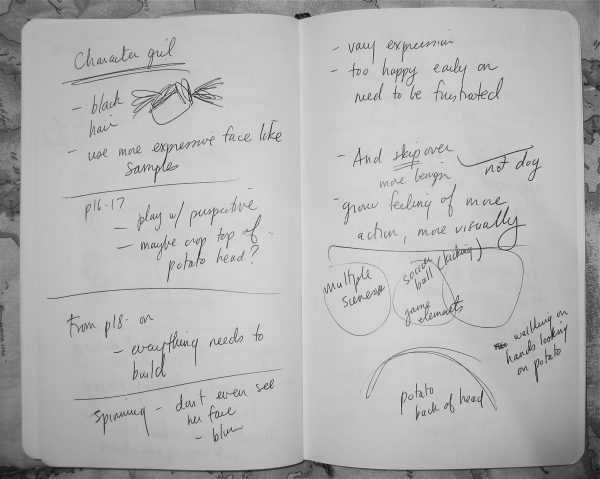 Character girl
- black
hair
- use more expressive face like
samples
p16-17
- play w/ perspective
- maybe crop top of
potato head?
From p18 on
- everything needs to
build
spinning - don't even see
her face
- blur
- vary expression
- too happy early on
need to be frustrated
- And skip over
more benign
not dog
- grow feeling of more
action, more visually
multiple
scenes
soccer
ball (kicking)
game
elements
walking on
hands looking
on potato
potato
back of head